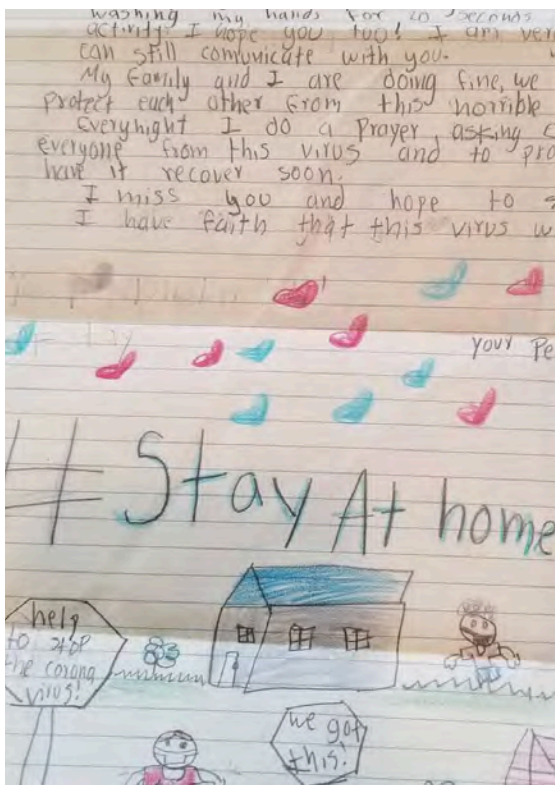 washing my hands for 20 seconds
activity! I hope you too! I am ver
can still comunicate with you.
My Family and I are doing fine, we
protect each other from this horrible
Everynight I do a Prayer, asking
everyone from this virus and to pro
have it recover soon.
I miss you and hope to s
I have faith that this virus w
your Pe
# Stay At home
help
to stop
the corona
virus!
we got
this!